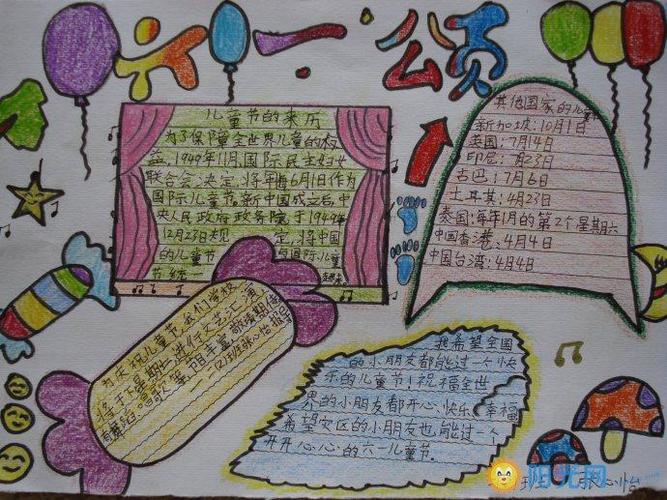 六一颂
儿童节的来历
为了保障全世界儿童的权
益,1949年11月,国际民主妇女
联合会决定,将每年6月1日作为
国际儿童节。新中国成立后,中
央人民政府政务院于1949年
12月23日规定,将中国
的儿童节与国际儿童
节统一起来。
其他国家的儿童
新加坡:10月1日
美国:7月14日
印尼:7月23日
古巴:7月6日
土耳其:4月23日
泰国:每年1月的第2个星期六
中国香港:4月4日
中国台湾:4月4日
为庆祝儿童节,我们学校
将于下星期七进行文艺汇演
有舞蹈、唱歌等,阳丰富,敬请期待
我希望全国
的小朋友都能过一个快
乐的儿童节!祝福全世
界的小朋友都开心、快乐、幸福
希望灾区的小朋友也能过一个
开开心心的六一儿童节.
阳光网